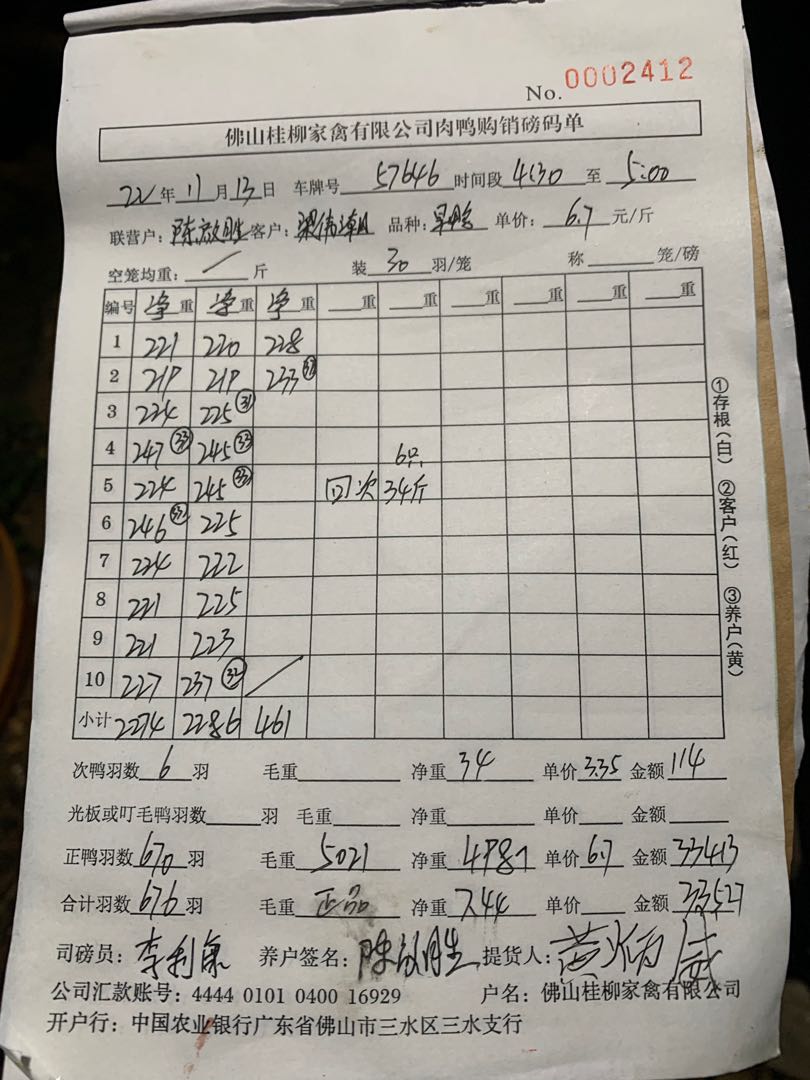 No. 0002412
佛山桂柳家禽有限公司肉鸭购销磅码单
22年11月13日 车牌号 57646 时间段 4:30 至 5:00
联营户：陈放胜 客户：梁伟潮 品种： 单价：6.7元/斤
空笼均重：/斤 装30羽/笼 称 笼/磅
编号 净重 净重 净重 重 重 重 重 重 重
1 221 220 228
2 219 219 233
3 224 225 (31)
4 247 (33) 245 (33) 6只
5 224 245 (33) 回次 34斤
6 246 225
7 224 222
8 221 225
9 221 223
10 227 237 (32) /
小计 2274 2286 461
次鸭羽数6羽 毛重 净重34 单价3.35 金额114
光板或叮毛鸭羽数 羽 毛重 净重 单价 金额
正鸭羽数670羽 毛重5021 净重4987 单价6.7 金额33413
合计羽数676羽 毛重正品 净重7.44 单价 金额33527
司磅员：李利 养户签名：陈放胜 提货人：黄炳
公司汇款账号：4444 0101 0400 16929 户名：佛山桂柳家禽有限公司
开户行：中国农业银行广东省佛山市三水区三水支行
①存根(白) ②客户(红) ③养户(黄)